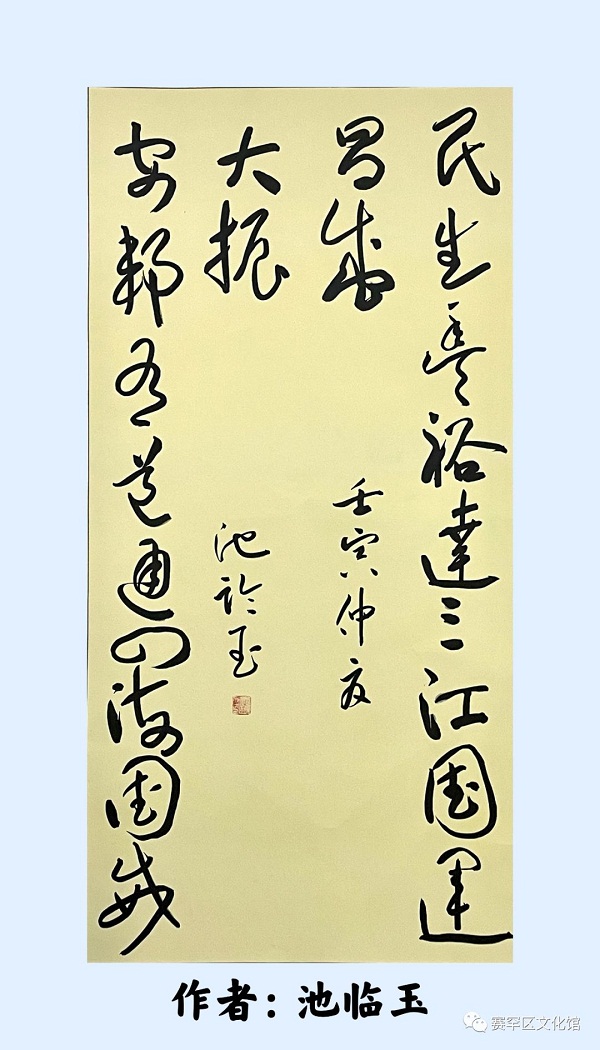 民生豐裕達三江国運
昌盛
壬寅仲夏
安邦有道通四海国威
大振
池临玉
作者：池临玉
赛罕区文化馆